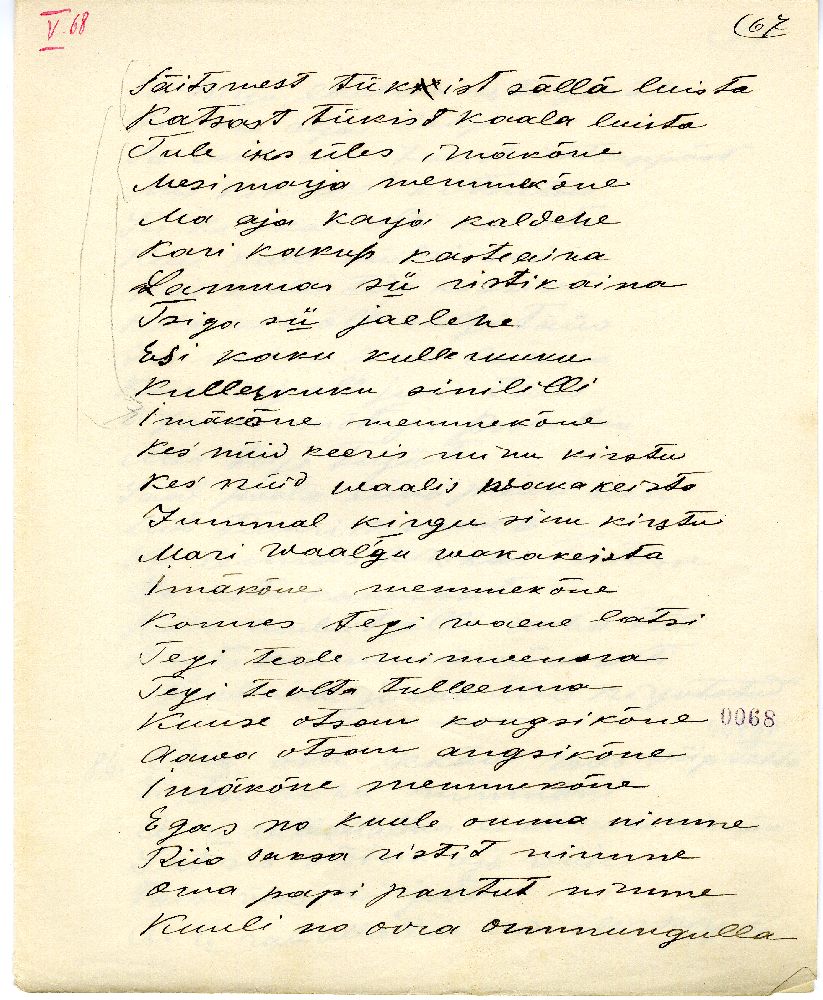 V. 68
67
Säitsmest tükist sällä luista
Katsast tükist kaala luista
Tule iks üles imäkõne
Mesimarja memmekõne
Ma aja karja kaldehe
Kari kakup kasteaina
Lammas sü ristikaina
Tsiga sü jaelehe
Esi kaku kullerkuku
Kullerkuku sinililli
Imäkõne memmekõne
Kes' nüid keeris minu kirstu
Kes' nüid waalis wakakeista
Jummal kirgu sinu kirstu
Mari waal'gu wakakeista
Imäkõne memmekõne
Konnes teye waene latsi
Teyi teole
Teyi teolta tulleenna
Kuuse otsan kougsikõne
0068
Aawa otsan augsikõne
Imäkõne memmekõne
Egas no kuule omma nimme
Riia saksa ristit nimme
Oma papi pantut nimme
Kuuli no ova ommungulla